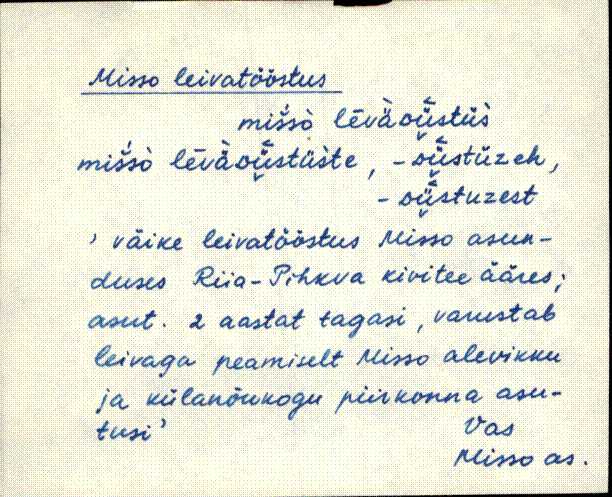 Misso leivatööstus
miššò lēvàoǚstüs̀
miššò lēvàoǚstüs̀te, -oǚstüzeh,
-oǚstuzest
' väike leivatööstus Misso asun-
duses Riia-Pihkva kivitee ääres;
asut. 2 aastat tagasi, varustab
leivaga peamiselt Misso alevikku
ja külanõukogu piirkonna asu-
tusi'
Vas
Misso as.